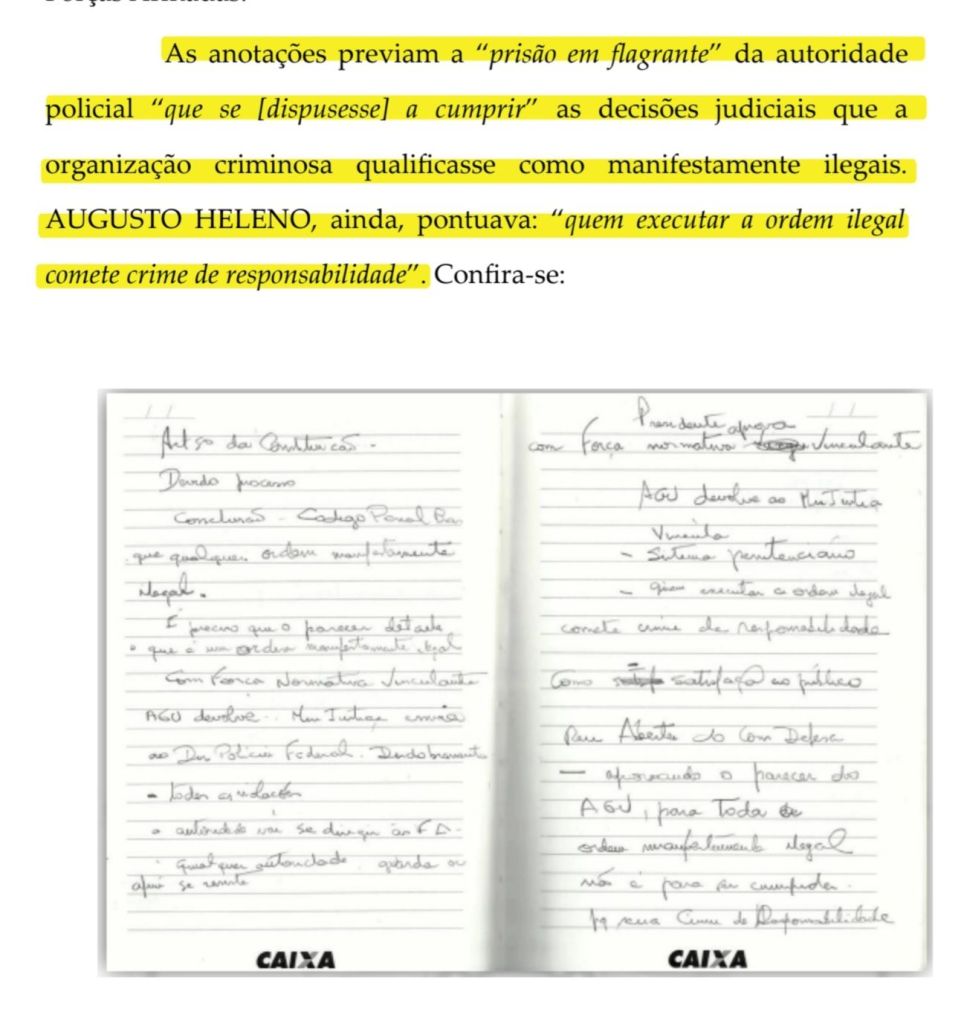 As anotações previam a “prisão em flagrante” da autoridade
policial “que se [dispusesse] a cumprir” as decisões judiciais que a
organização criminosa qualificasse como manifestamente ilegais.
AUGUSTO HELENO, ainda, pontuava: “quem executar a ordem ilegal
comete crime de responsabilidade”. Confira-se:
Artigo da Constituição -
Devido processo
Conclusão - Codigo Penal
que qualquer ordem manifestamente
ilegal.
É preciso que o parecer detalhe
o que é uma ordem manifestamente ilegal
Com Força Normativa Vinculante
AGU devolve Min Justiça
ao Polícia Federal. Desdobramento
- todas
autoridade vai se dirigir às FA.
Qualquer autoridade
se
CAIXA
Presidente aprova
com Força normativa Vinculante
AGU devolve ao Min Justiça
Vincula
- Sistema penitenciário
- quem executar a ordem ilegal
comete crime de responsabilidade
Como satisfação ao público
do Com Defesa
— aprovando o parecer do
AGU, para Toda
ordem manifestamente ilegal
não é para ser cumprida.
Crime de Responsabilidade
CAIXA